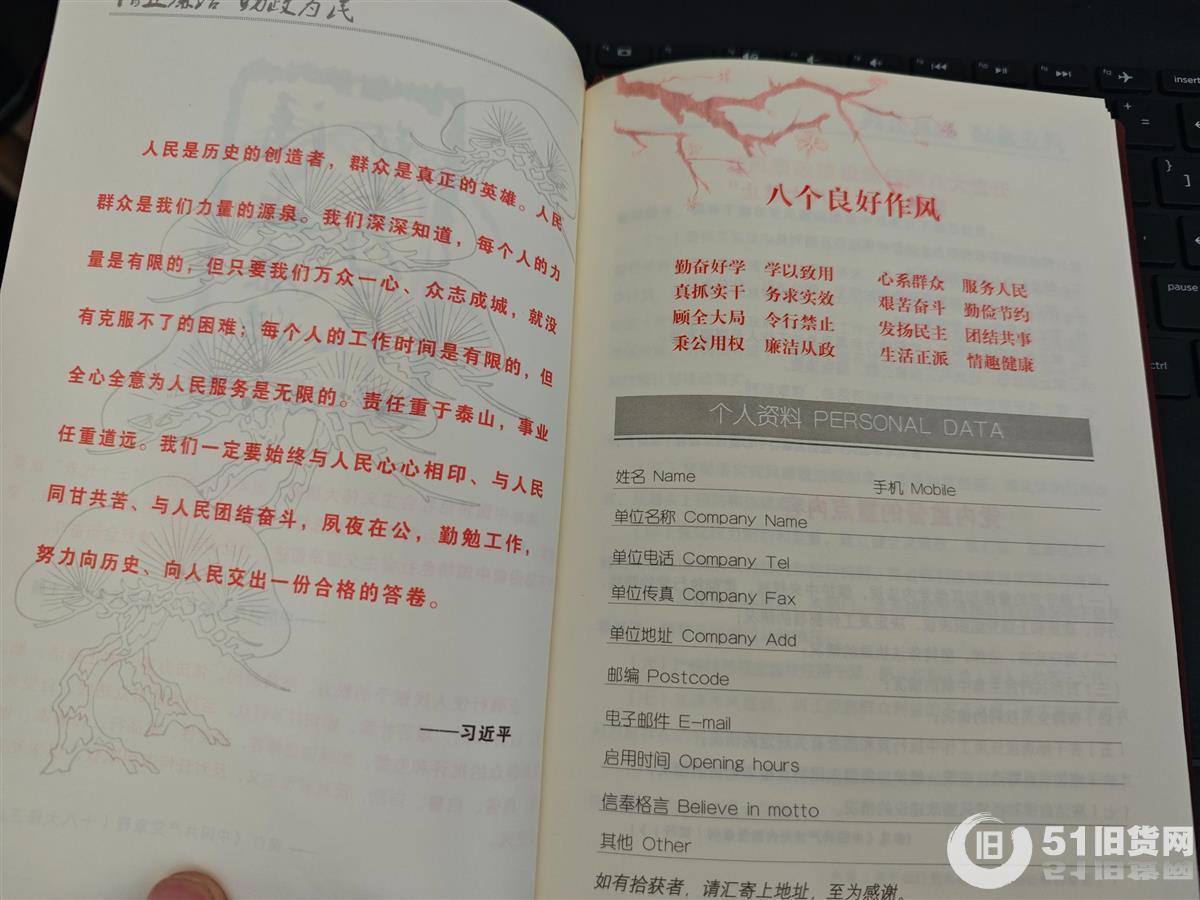 清正廉洁 勤政为民
人民是历史的创造者，群众是真正的英雄。人民
群众是我们力量的源泉。我们深深知道，每个人的力
量是有限的，但只要我们万众一心、众志成城，就没
有克服不了的困难；每个人的工作时间是有限的，但
全心全意为人民服务是无限的。责任重于泰山，事业
任重道远。我们一定要始终与人民心心相印、与人民
同甘共苦、与人民团结奋斗，夙夜在公，勤勉工作，
努力向历史、向人民交出一份合格的答卷。
——习近平
八个良好作风
勤奋好学 学以致用 心系群众 服务人民
真抓实干 务求实效 艰苦奋斗 勤俭节约
顾全大局 令行禁止 发扬民主 团结共事
秉公用权 廉洁从政 生活正派 情趣健康
个人资料 PERSONAL DATA
姓名 Name 手机 Mobile
单位名称 Company Name
单位电话 Company Tel
单位传真 Company Fax
单位地址 Company Add
邮编 Postcode
电子邮件 E-mail
启用时间 Opening hours
信奉格言 Believe in motto
其他 Other
如有拾获者，请汇寄上地址，至为感谢。
insert
pause
ctrl
旧 51旧货网